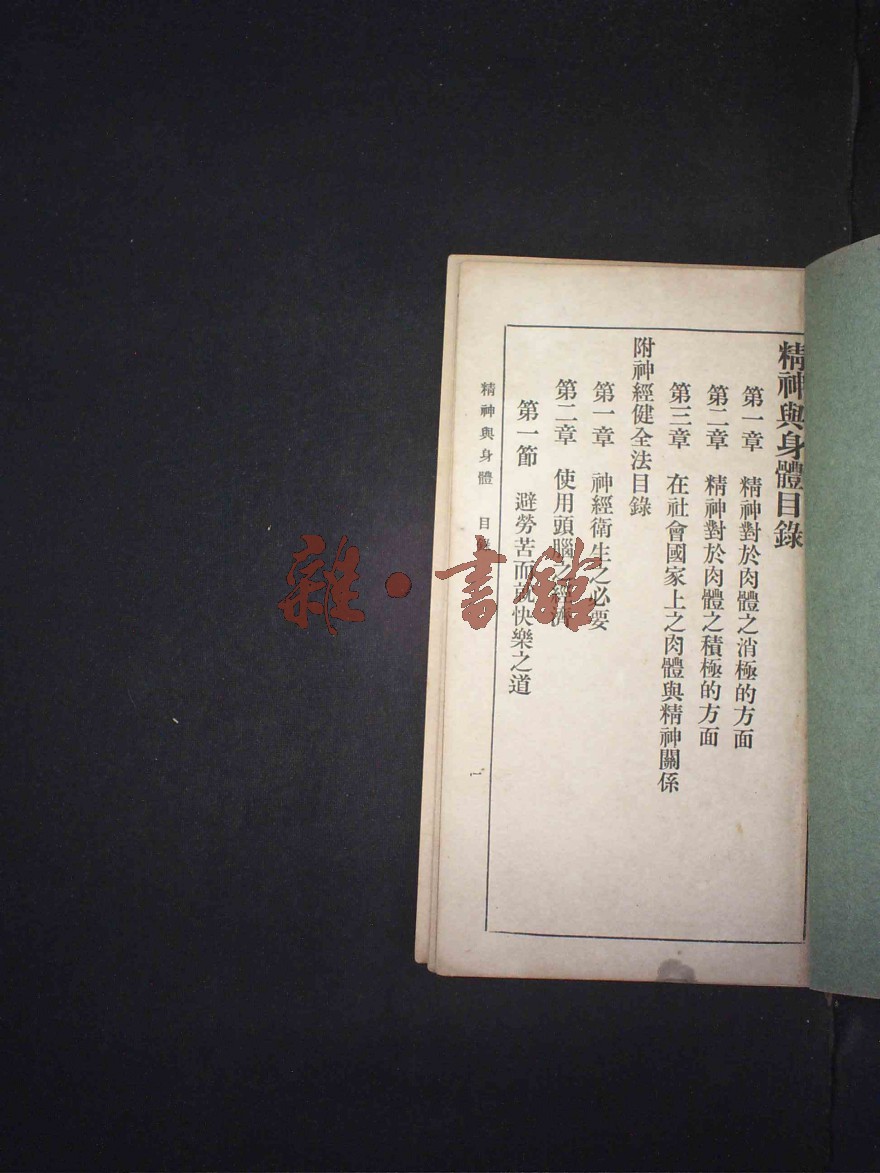 精神與身體目錄
第一章　精神對於肉體之消極的方面
第二章　精神對於肉體之積極的方面
第三章　在社會國家上之肉體與精神關係
附神經健全法目錄
第一章　神經衛生之必要
第二章　使用頭腦之經濟
第一節　避勞苦而就快樂之道
精神與身體　目錄
一
雜·書館